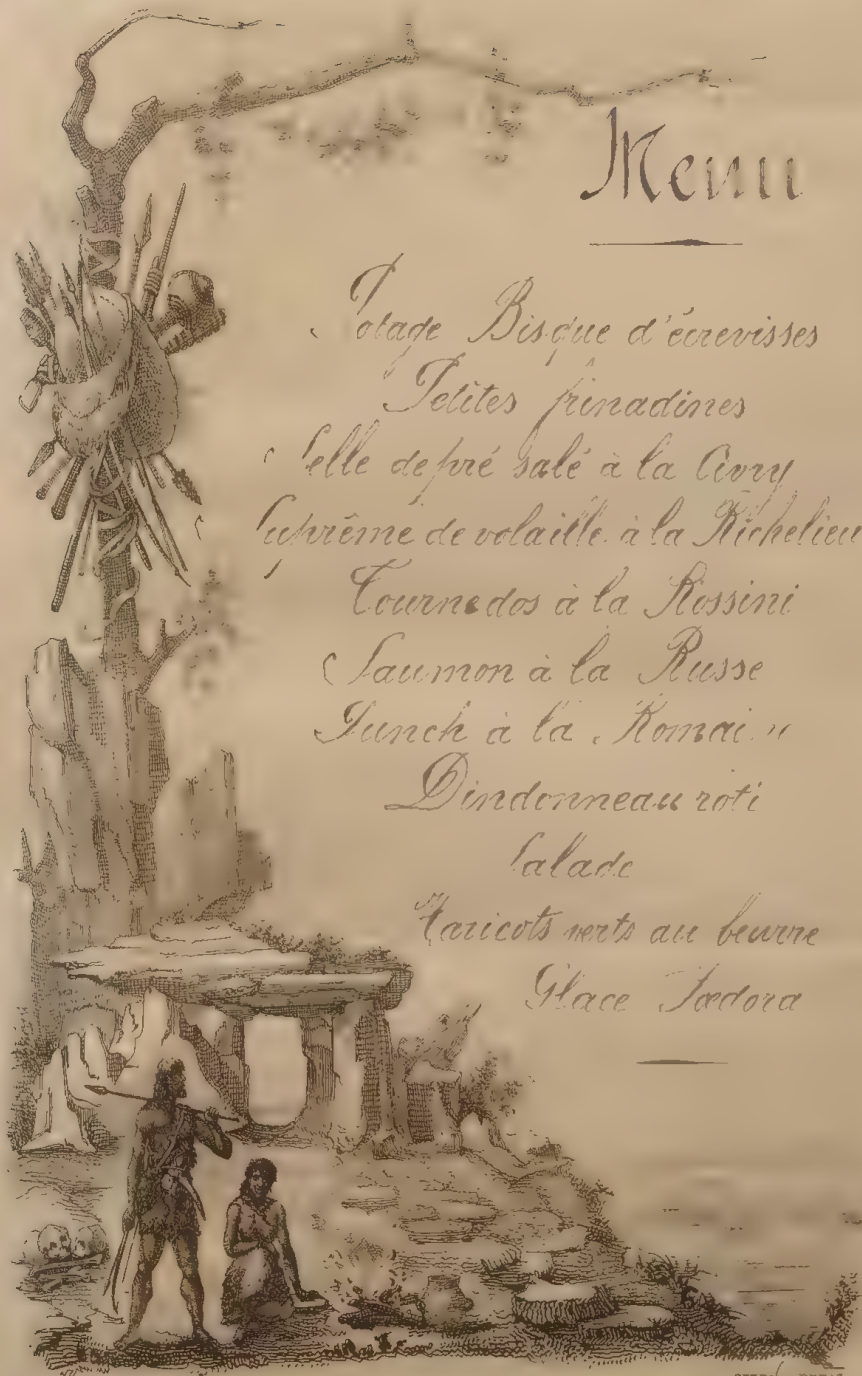 Menu
Potage Bisque d'écrevisses
Petites
Selle de pré salé à la
Suprême de volaille à la Richelieu
Tournedos à la Rossini
Saumon à la Russe
Punch à la
Dindonneau roti
Salade
Haricots verts au beurre
Glace Fœdora